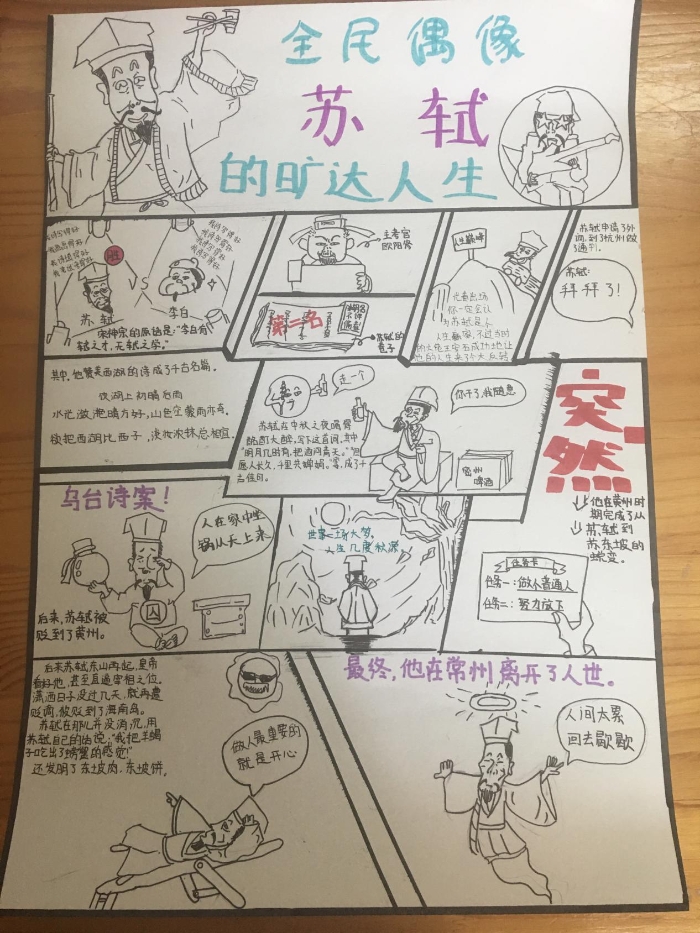 全民偶像
苏轼
的旷达人生
VS
苏轼
李白
宋神宗的原话是:“李白有
轼之才,无轼之学。”
主考官
欧阳修
第二名
苏轼的
卷子
人生巅峰
人生赢家,不过当时
苏轼申请了外
调,到了杭州做
了通判。
苏轼:
拜拜了!
其中,他赞美西湖的诗成了千古名篇。
饮湖上初晴后雨
水光潋滟晴方好,山色空蒙雨亦奇。
欲把西湖比西子,淡妆浓抹总相宜。
走一个
你干了,我随意
苏轼在中秋之夜喝得
酩酊大醉,写下这首词,其中
“明月几时有,把酒问青天。”“但
愿人长久,千里共婵娟。”等,成了千
古佳句。
密州
啤酒
突然
他在黄州时
期完成了从
苏轼到
苏东坡的
蜕变。
乌台诗案!
人在家中坐
锅从天上来
囚
后来,苏轼被
贬到了黄州。
世事一场大梦,
人生几度秋凉
任务卡
任务一:做个普通人
任务二:努力放下
后来苏轼东山再起,皇帝
看好他,甚至直逼宰相之位。
潇洒日子没过几天,就再遭
贬谪,被贬到了海南岛。
苏轼在那儿并没消沉,用
苏轼自己的话说:“我把羊蝎
子吃出了螃蟹的感觉!”
还发明了东坡肉、东坡饼。
做人最重要的
就是开心
最终,他在常州离开了人世。
人间太累
回去歇歇